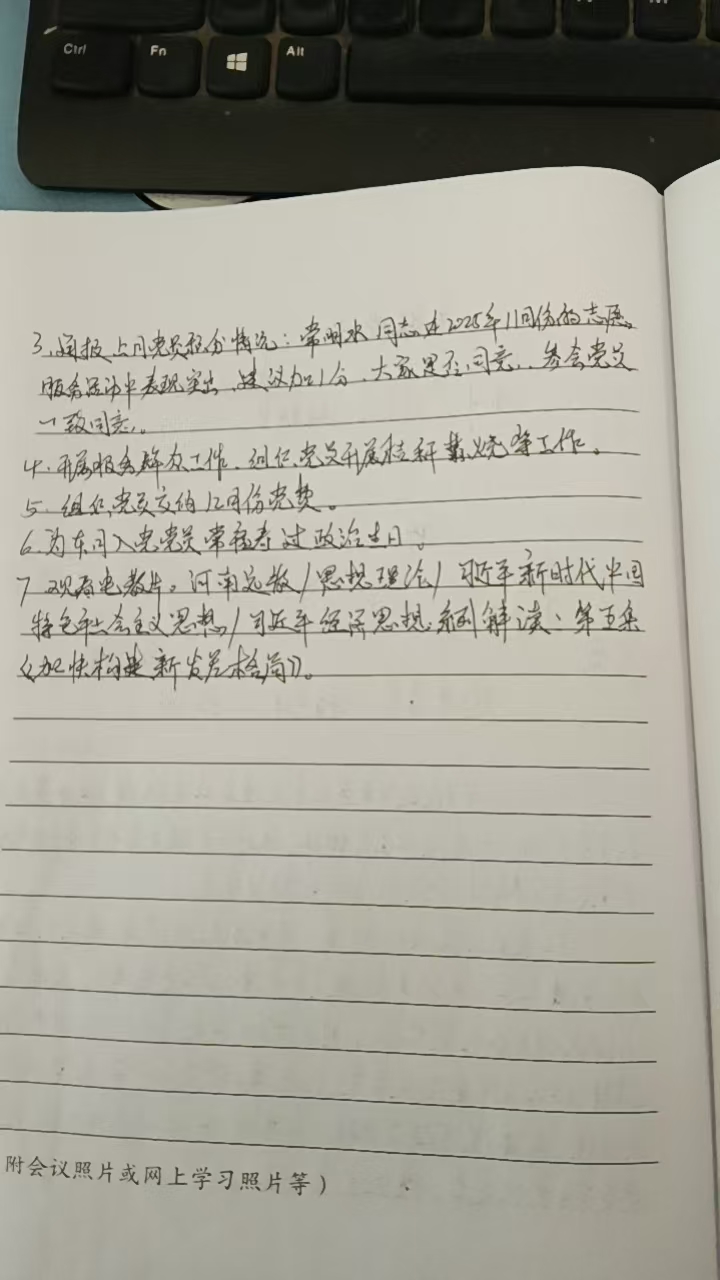 Ctrl Fn Alt
3、通报上月党员积分情况：常明水同志在2025年11月份的志愿
服务活动中表现突出，建议加1分，大家是否同意，参会党员
一致同意。
4、开展服务群众工作，组织党员开展秸秆禁烧等工作。
5、组织党员交纳12月份党费。
6、为本月入党党员常福寿过政治生日。
7、观看电教片。河南远教/思想理论/习近平新时代中国
特色社会主义思想/习近平经济思想系列解读：第五集
《加快构建新发展格局》。
附会议照片或网上学习照片等）